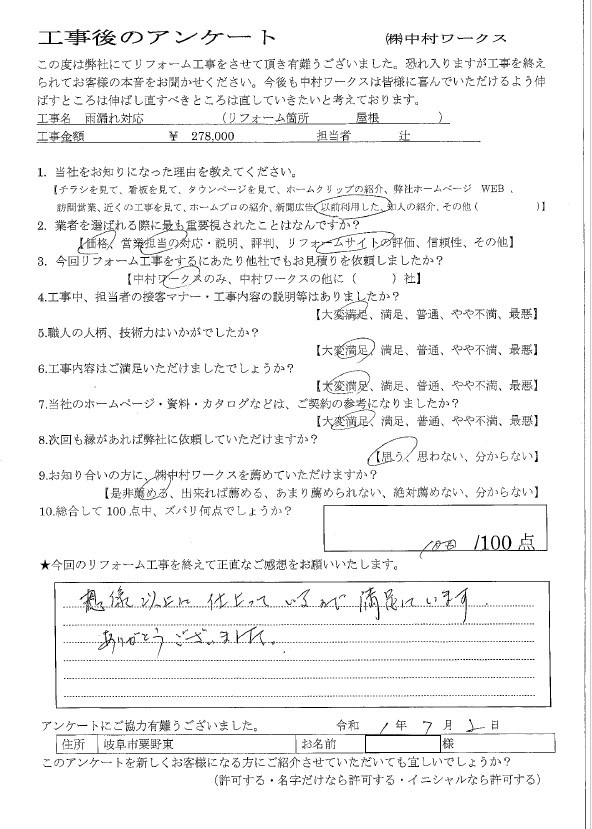 工事後のアンケート ㈱中村ワークス
この度は弊社にてリフォーム工事をさせて頂き有難うございました。恐れ入りますが工事を終え
られてお客様の本音をお聞かせください。今後も中村ワークスは皆様に喜んでいただけるよう伸
ばすところは伸ばし直すべきところは直していきたいと考えております。
工事名 雨漏れ対応 (リフォーム箇所 屋根 )
工事金額 ¥ 278,000 担当者 辻
1. 当社をお知りになった理由を教えてください。
【チラシを見て、看板を見て、タウンページを見て、ホームクリップの紹介、弊社ホームページ WEB 、
訪問営業、近くの工事を見て、ホームプロの紹介、新聞広告、以前利用した、知人の紹介、その他( )】
2. 業者を選ばれる際に最も重要視されたことはなんですか?
【価格、営業担当の対応・説明、評判、リフォームサイトの評価、信頼性、その他】
3. 今回リフォーム工事をするにあたり他社でもお見積りを依頼しましたか?
【中村ワークスのみ、中村ワークスの他に( )社】
4.工事中、担当者の接客マナー・工事内容の説明等はありましたか?
【大変満足、満足、普通、やや不満、最悪】
5.職人の人柄、技術力はいかがでしたか?
【大変満足、満足、普通、やや不満、最悪】
6.工事内容はご満足いただけましたでしょうか?
【大変満足、満足、普通、やや不満、最悪】
7.当社のホームページ・資料・カタログなどは、ご契約の参考になりましたか?
【大変満足、満足、普通、やや不満、最悪】
8.次回も縁があれば弊社に依頼していただけますか?
【思う、思わない、分からない】
9.お知り合いの方に、㈱中村ワークスを薦めていただけますか?
【是非薦める、出来れば薦める、あまり薦められない、絶対薦めない、分からない】
10.総合して100点中、ズバリ何点でしょうか?
100 /100点
★今回のリフォーム工事を終えて正直なご感想をお願いいたします。
想像以上に仕上っているので満足しています.
ありがとうございました。
アンケートにご協力有難うございました。 令和 1年 7月 2日
住所 岐阜市粟野東 お名前 様
このアンケートを新しくお客様になる方にご紹介させていただいても宜しいでしょうか?
(許可する・名字だけなら許可する・イニシャルなら許可する)